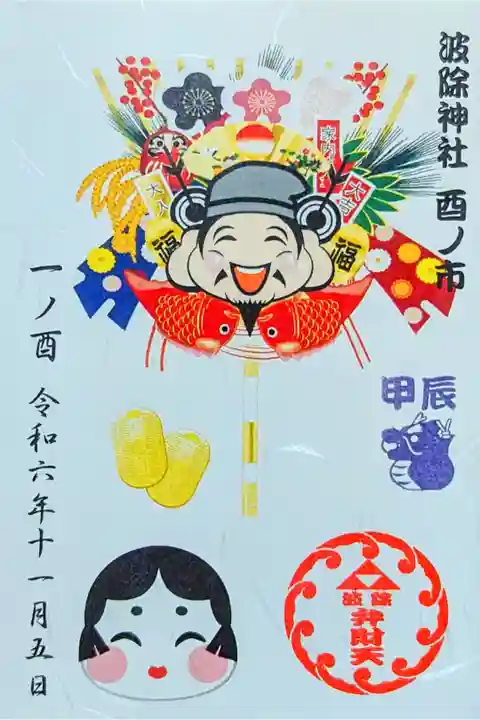 波除神社 酉ノ市
家内
大吉
大入
福
福
甲辰
波除
弁財天
一ノ酉 令和六年十一月五日